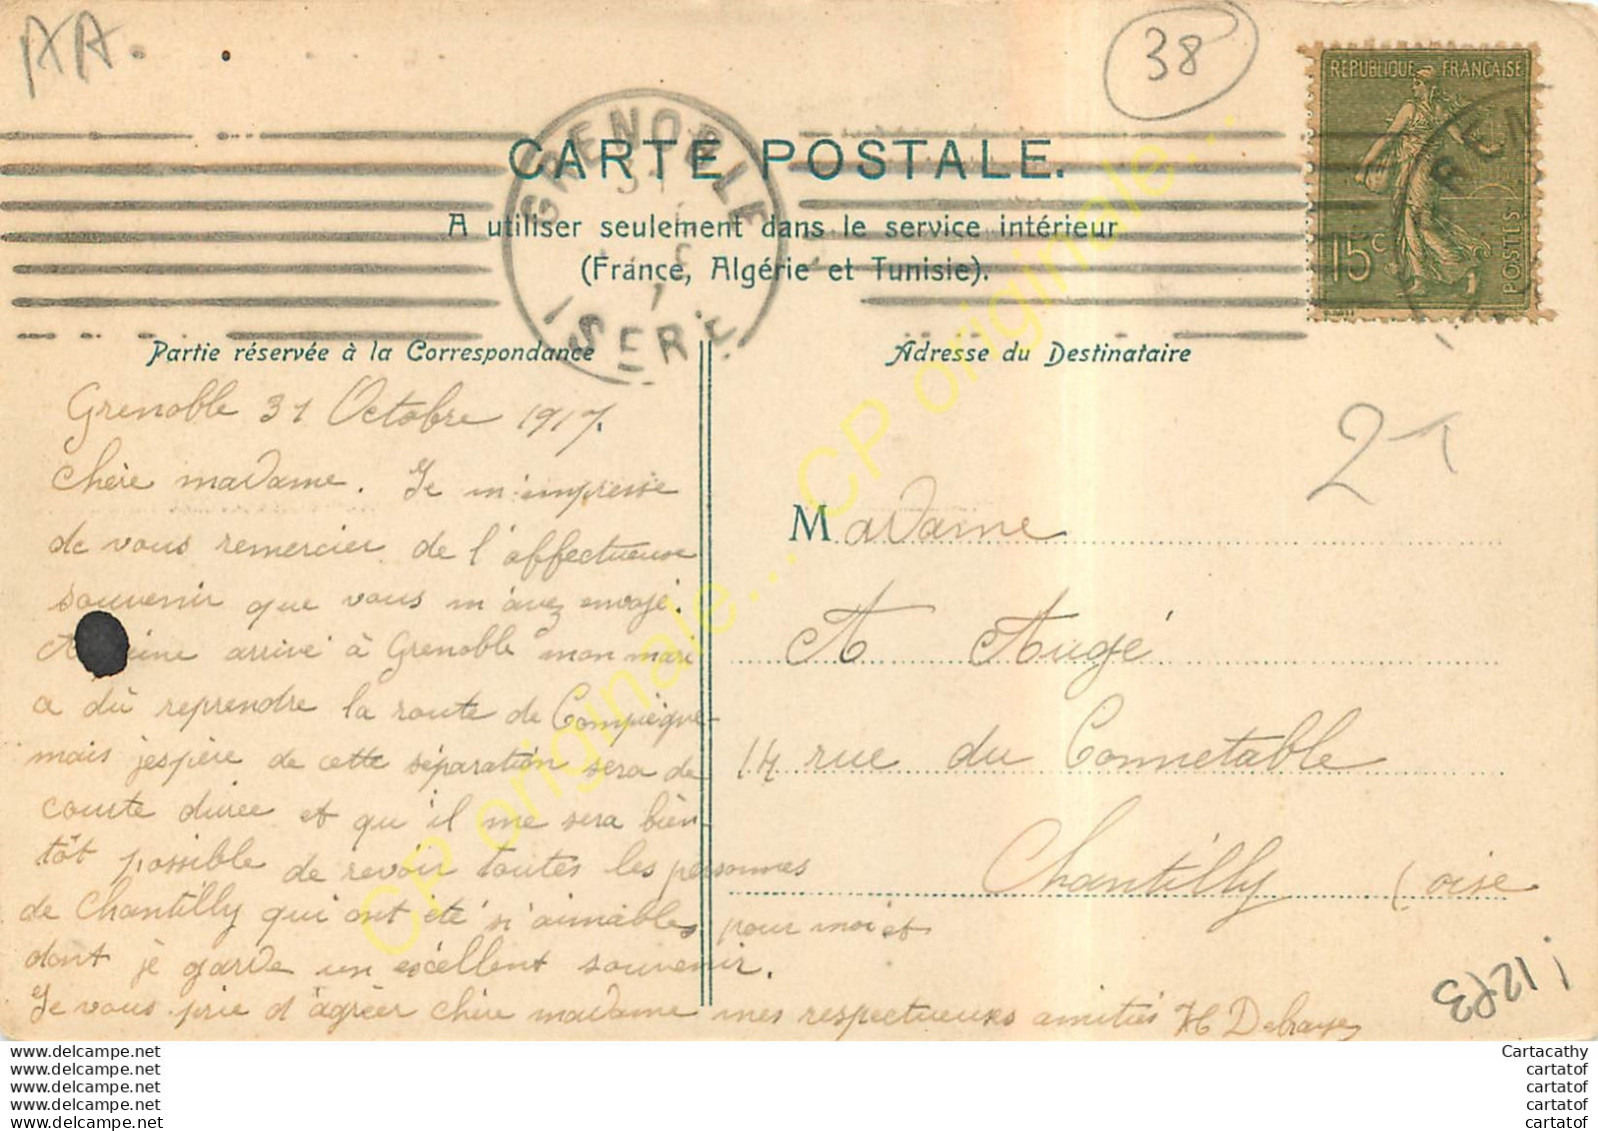 AA.
38
GRENOBLE
ISERE
REPUBLIQUE FRANÇAISE
15c
POSTES
CARTE POSTALE.
A utiliser seulement dans le service intérieur
(France, Algérie et Tunisie).
Partie réservée à la Correspondance
Adresse du Destinataire
Grenoble 31 Octobre 1917.
Chère madame. Je m'impresse
de vous remercier de l'affectueuse
souvenir que vous m'avez envoyé.
arrivé à Grenoble mon mari
a dû reprendre la route de Compiègne
mais j'espère de cette séparation sera de
courte durée et qu'il me sera bien-
tôt possible de revoir toutes les personnes
de Chantilly qui ont été si aimables pour moi et
dont je garde un excellent souvenir.
Je vous prie d'agréer chère madame mes respectueuses amitiés H Debraye
21
Madame
A Augé
14 rue du Connetable
Chantilly (oise
CP originale... CP originale... CP originale...
www.delcampe.net
www.delcampe.net
www.delcampe.net
www.delcampe.net
www.delcampe.net
Cartacathy
cartatof
cartatof
cartatof
cartatof